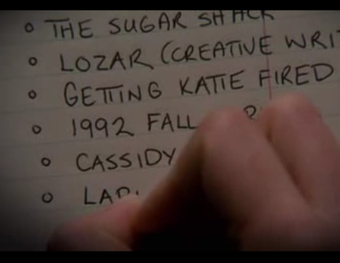 THE SUGAR SHACK
LOZAR (CREATIVE
GETTING KATIE FIRED
1992 FALL
CASSIDY